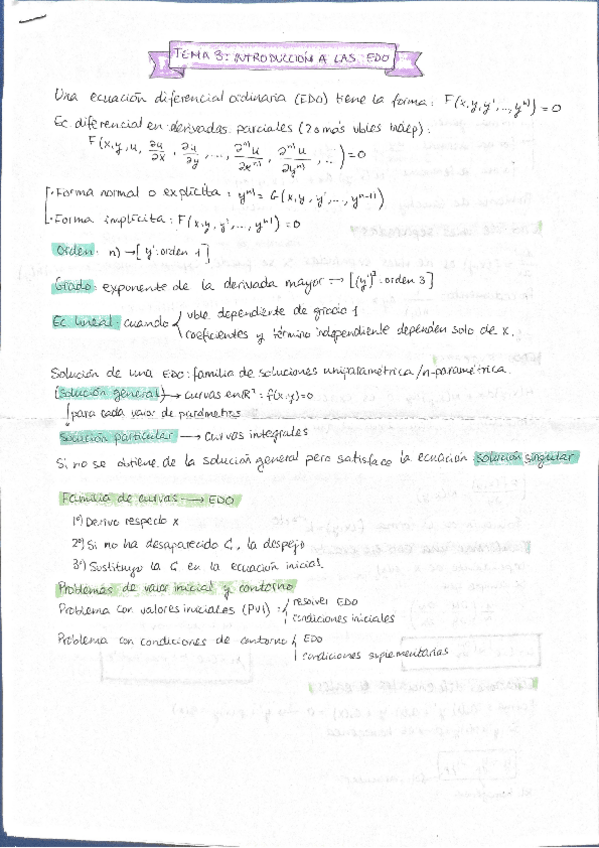 TEMA 3: INTRODUCCIÓN A LAS EDO
Una ecuación diferencial ordinaria (EDO) tiene la forma: F(x,y,y',...,yⁿ⁾)=0
Ec diferencial en derivadas parciales (2 o más vbles indep):
F(x,y,u, ∂u/∂x, ∂u/∂y, ..., ∂ⁿ⁾u/∂xⁿ⁾, ∂ⁿ⁾u/∂yⁿ⁾, ..)=0
· Forma normal o explícita: yⁿ⁾= G(x,y,y',...,yⁿ⁻¹⁾)
· Forma implícita: F(x,y,y',...,yⁿ⁾)=0
Orden: n) → [y': orden 1]
Grado: exponente de la derivada mayor → [(y')³: orden 3]
Ec lineal: cuando { vble dependiente de grado 1
coeficientes y término independiente dependen solo de x.
Solución de una EDO: familia de soluciones uniparamétrica/n-paramétrica.
(solución general) → curvas en R²: f(x,y)=0
↓ para cada valor de parámetros
Solución particular → curvas integrales
Si no se obtiene de la solución general pero satisface la ecuación: solución singular
Familia de curvas → EDO
1º) Derivo respecto x
2º) Si no ha desaparecido C, la despejo
3º) Sustituyo la C en la ecuación inicial.
Problemas de valor inicial y contorno
Problema con valores iniciales (PVI) : { resolver EDO
condiciones iniciales
Problema con condiciones de contorno { EDO
condiciones suplementarias